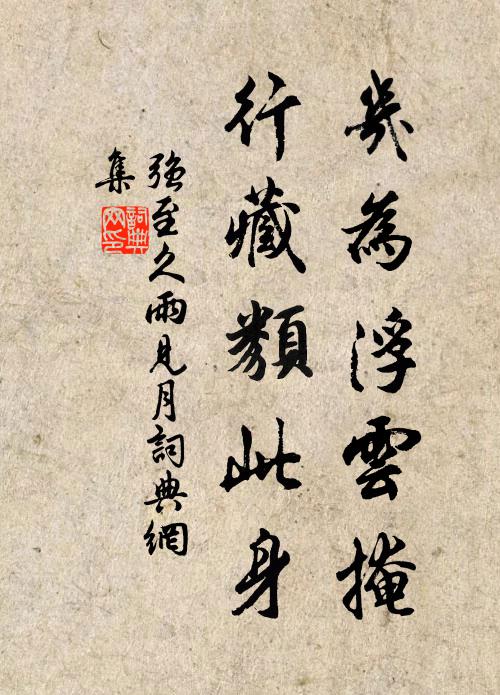 幾為浮雲掩
行藏類此身
強至久雨見月詞典網
集
詞典網印